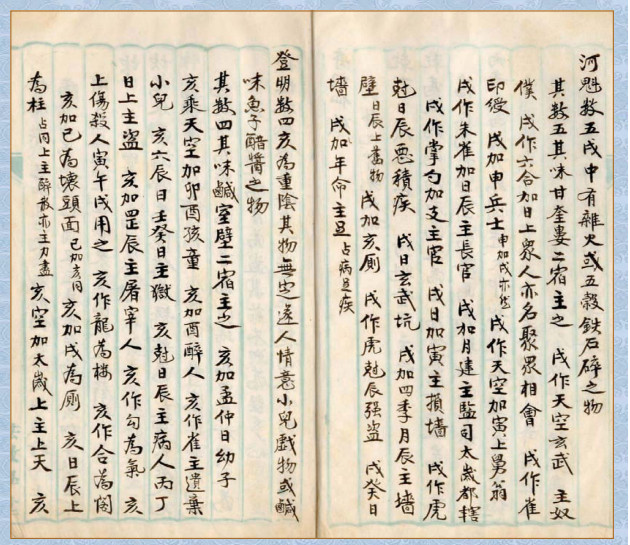 河魁数五戌中有雜火或五穀鉄石碎之物
其数五其味甘奎婁二宿主之 戌作天空玄武 主奴
僕 戌作六合加日上衆人亦名聚眾相會 戌作雀
印綬 戌加申兵士申加戌亦然 戌作天空加寅上舅翁
戌作朱雀加日辰主長官 戌加月建主監司太歲都轄
戌作掌勾加支主官 戌日加寅主損墻 戌作虎
尅日辰惡積疾 戌日玄武坑 戌加四季月辰主墻
壁日辰上舊物 戌加亥厠 戌作虎尅辰强盜 戌癸日
墻 戌加年命主足占病足疾
登明数四亥為重陰其物無定遠人情意小兒戲物或鹹
味魚子醋醬之物
其数四其味鹹室壁二宿主之 亥加孟仲日幼子
亥乘天空加卯酉孩童 亥加酉醉人 亥作雀主遺棄
小兒 亥六辰日壬癸日主獄 亥尅日辰主病人丙丁
日上主盜 亥加罡辰主屠宰人 亥作勾為氣 亥
上傷殺人寅午戌用之 亥作龍為楼 亥作合為閣
亥加巳為壞頭面巳加亥同 亥加戌為厠 亥日辰上
為柱占同上主醉散亦主力盡 亥空加太歲上主上天 亥